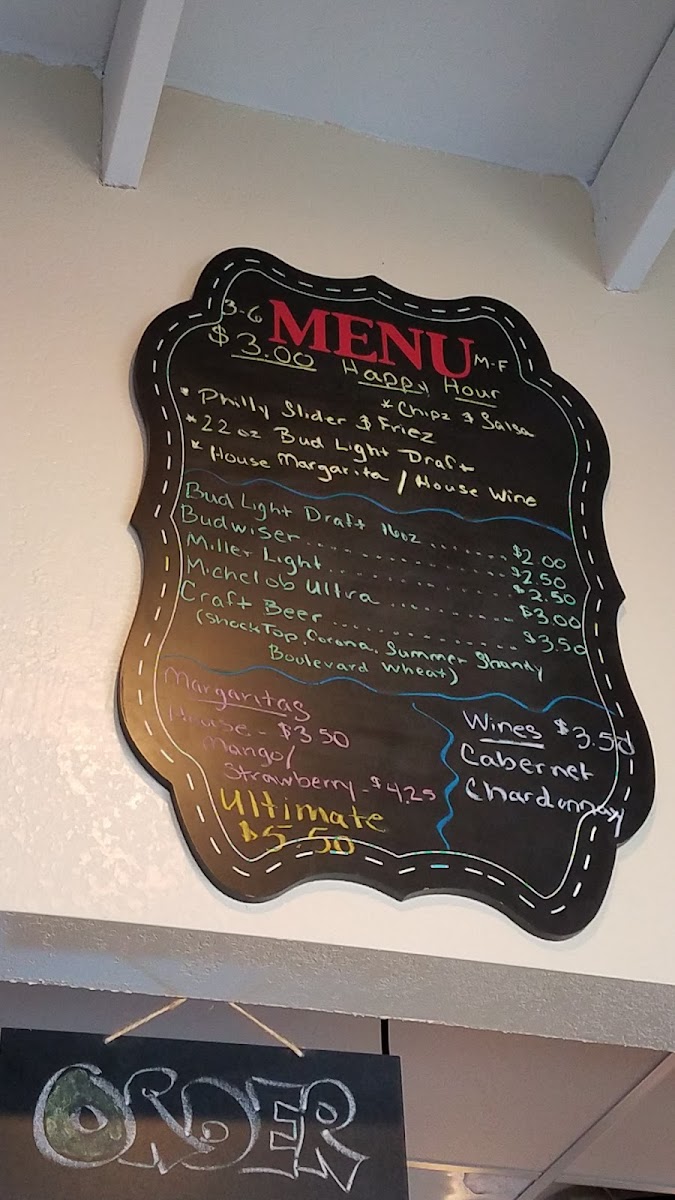 3-6 MENU M-F
$3.00 Happy Hour
* Philly Slider & Friez
* Chipz & Salsa
* 22 oz Bud Light Draft
* House Margarita / House Wine
Bud Light Draft 16oz ....... $2.00
Budwiser .............. $2.50
Miller Light .............. $2.50
Michelob Ultra ........... $3.00
Craft Beer .............. $3.50
(Shock Top, Corona, Summer Shandy
Boulevard Wheat)
Margaritas
House - $3.50
Mango/
Strawberry - $4.25
Ultimate
$5.50
Wines $3.50
Cabernet
Chardonnay
ORDER